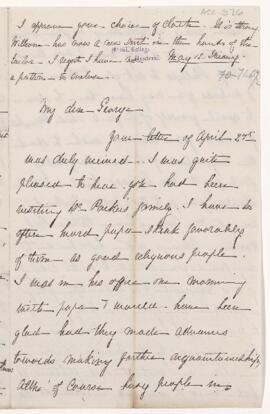 ACC 376
I approve your choice of cloth. It is
William has now a new suit in the hands of the
Tailor. I regret I have no
May 12.
a pattern to enclose.
My dear George
Your letter of April 27th
was duly received. I was quite
pleased to hear you had been
visiting Dr. Parkers family. I have so
often heard papa speak favorably
of them as good religious people.
I was in his office one morning
with papa & would have been
glad had they made advances
towards making further acquaintanceship,
Altho' of course busy people in